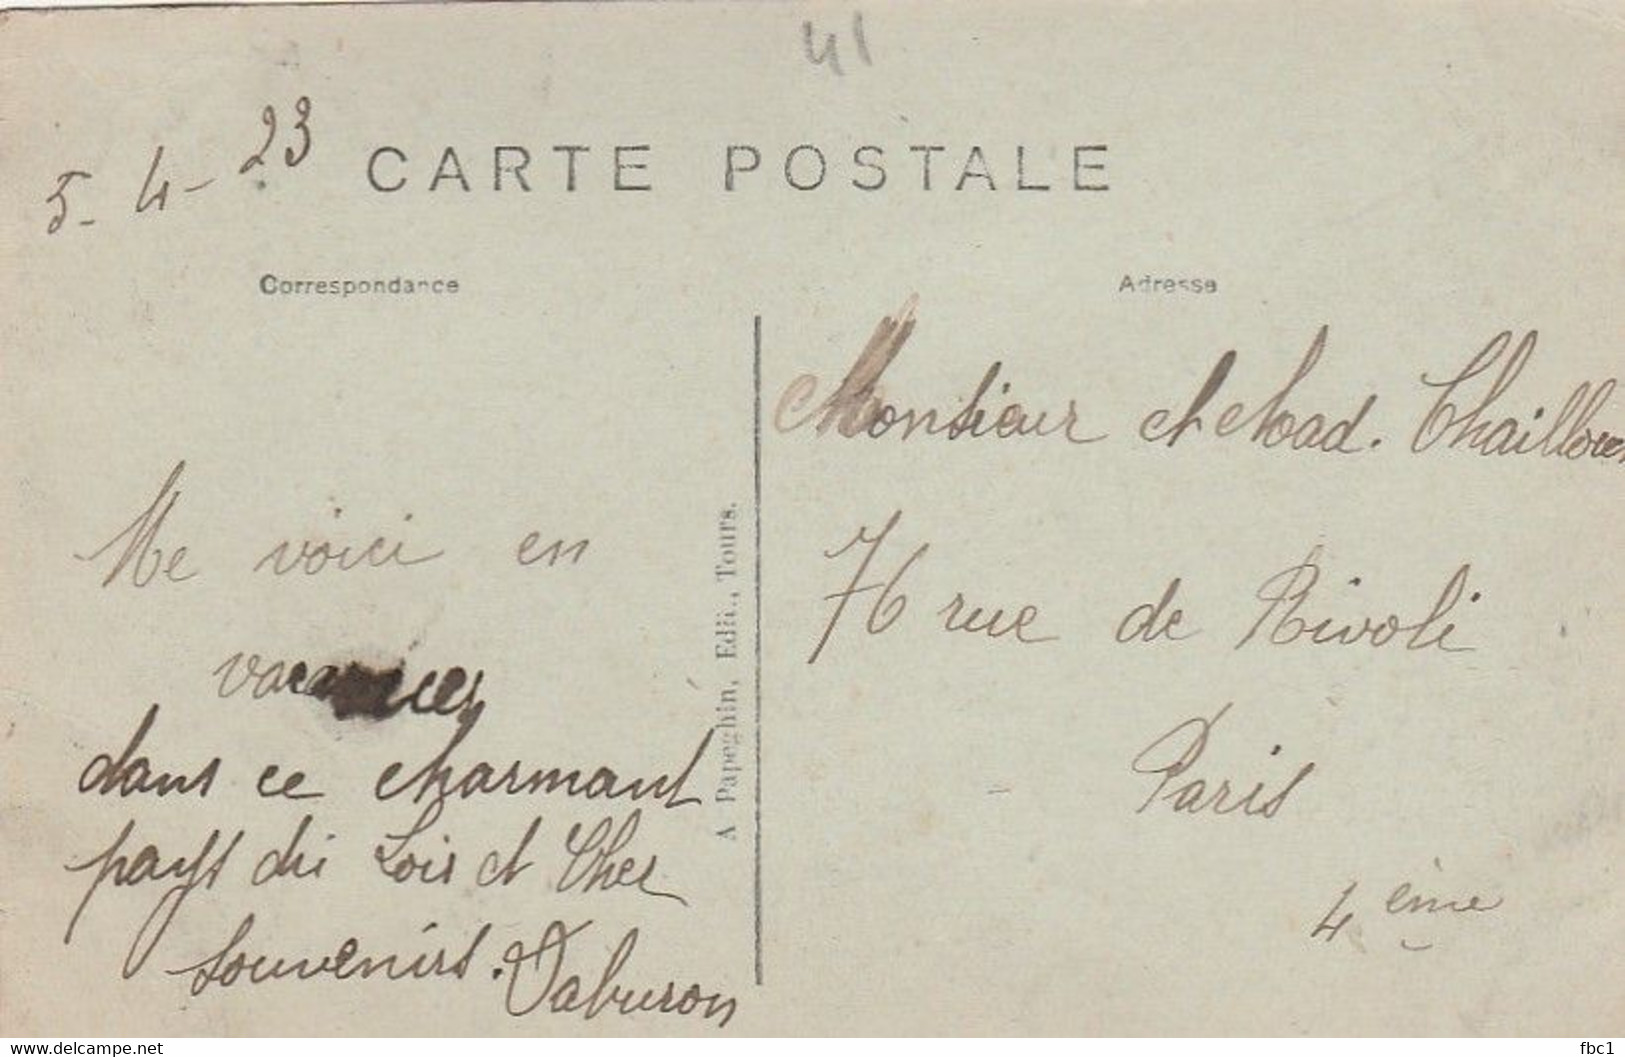 41
5-4-23
CARTE POSTALE
Correspondance
Adresse
Me voici en
vacances
dans ce charmant
pays du Loir et Cher
Souvenirs.
Taburon
A Papeghin, Edit., Tours.
Monsieur et Mad.
76 rue de Rivoli
Paris
4 ème
www.delcampe.net
fbc1